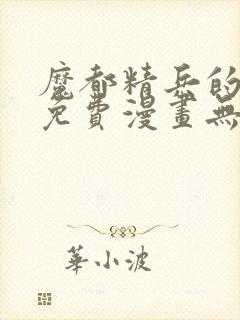 魔都精兵的
免費漫畫無
華小波